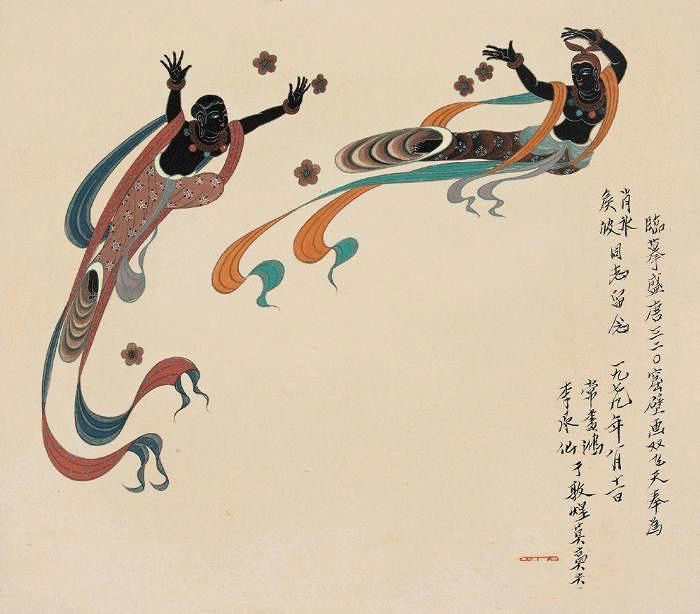 临摹盛唐三二〇窟壁画双飞天奉为
肖永
侯波同志留念 一九七九年八月十二日
常书鸿
李承仙 于敦煌莫高窟